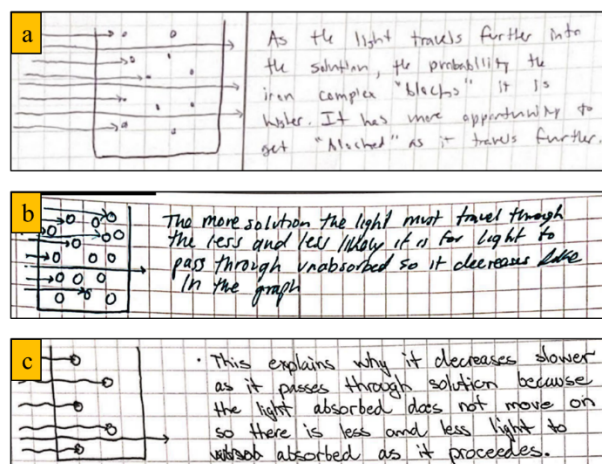 a
As the light travels further into
the solution, the probability the
iron complex "blocks" it is
higher. It has more opportunity to
get "blocked" as it travels further.
b
The more solution the light must travel through
the less and less likely it is for light to
pass through unabsorbed so it decreases like
in the graph
c
· This explains why it decreases slower
as it passes through solution because
the light absorbed does not move on
so there is less and less light to
absorbed as it proceedes.